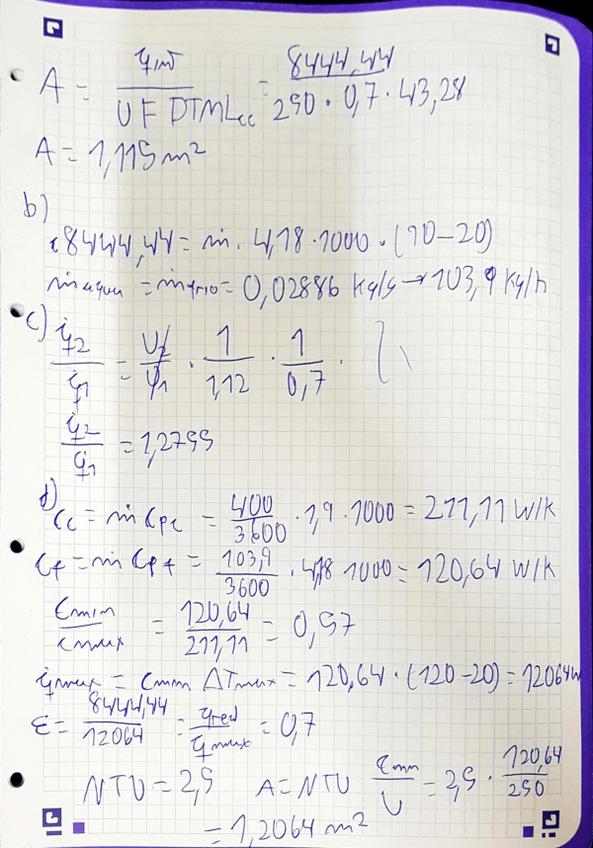 A = q̇int / (U F DTMLcc) = 8444,44 / (250 · 0,7 · 43,28)
A = 1,115 m²
b)
8444,44 = ṁ · 4,18 · 1000 · (90-20)
ṁagua = ṁfrio = 0,02886 kg/s → 103,9 kg/h
c) q̇2 / q̇1 = · 1/1,12 · 1/0,7 ·
q̇2 / q̇1 = 1,2755
d) Cc = ṁ Cpc = 400/3600 · 1,9 · 1000 = 211,11 W/K
Cf = ṁ Cpf = 103,9/3600 · 4,18 1000 = 120,64 W/K
Cmin / Cmax = 120,64 / 211,11 = 0,57
q̇max = Cmin ΔTmax = 120,64 · (120-20) = 12064 W
ε = 8444,44 / 12064 = q̇real / q̇max = 0,7
NTU = 2,5 A = NTU Cmin / U = 2,5 · 120,64 / 250
= 1,2064 m²